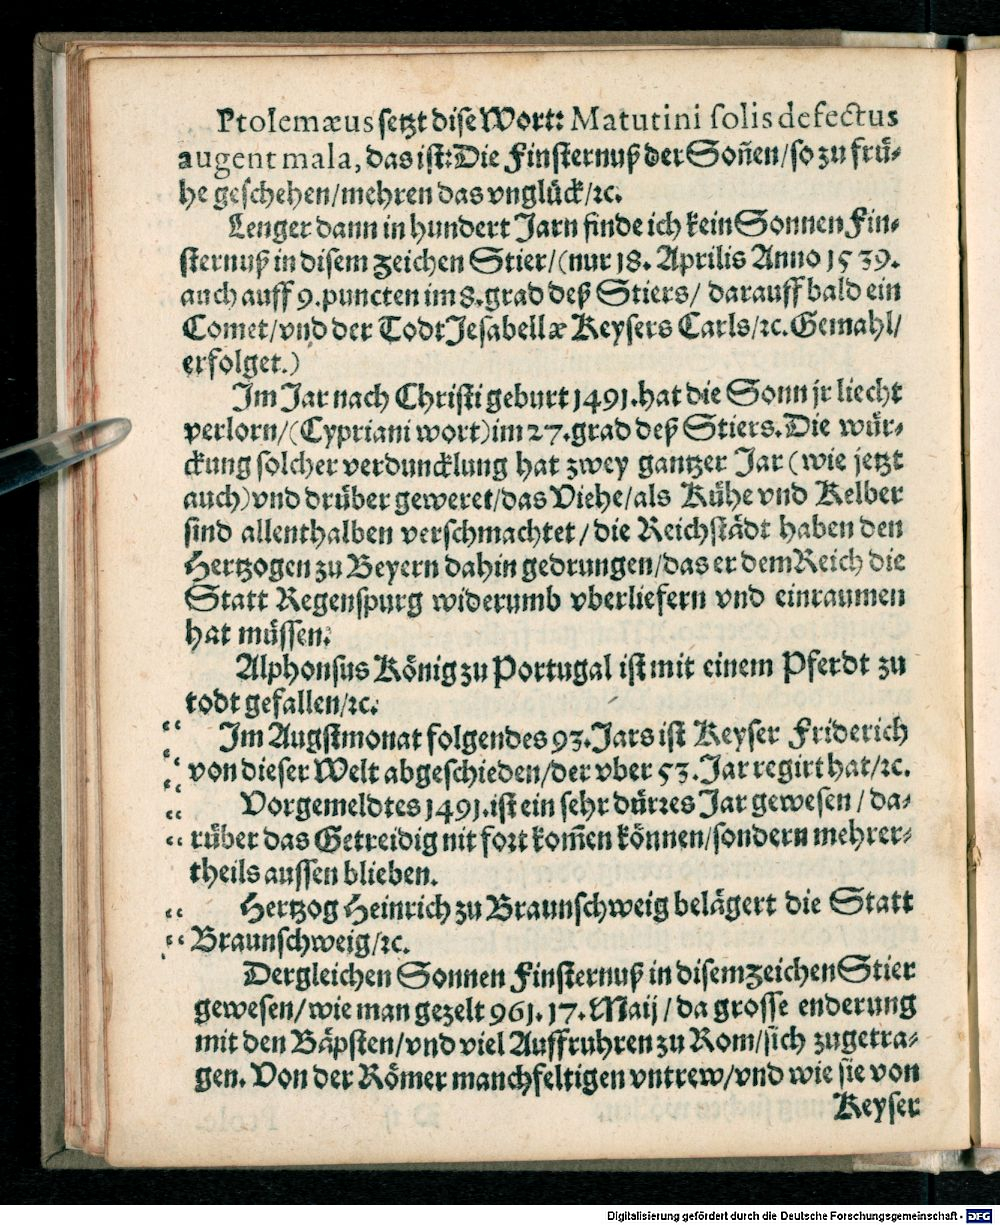 Ptolemæus setzt dise Wort: Matutini solis defectus
augent mala, das ist: Die Finsternuß der Soñen/so zu frü-
he geschehen/mehren das vnglück/ꝛc.
Lenger dann in hundert Jarn finde ich kein Sonnen Fin-
sternuß in disem zeichen Stier/(nur 18. Aprilis Anno 1539.
auch auff 9. puncten im 8. grad deß Stiers/ darauff bald ein
Comet/vnd der Todt Jesabellæ Keysers Carls/ꝛc. Gemahl/
erfolget.)
Im Jar nach Christi geburt 1491. hat die Sonn jr liecht
verlorn/(Cypriani wort) im 27. grad deß Stiers. Die wür-
ckung solcher verduncklung hat zwey gantzer Jar (wie jetzt
auch) vnd drüber geweret/das Viehe/als Kühe vnd Kelber
sind allenthalben verschmachtet/die Reichstädt haben den
Hertzogen zu Beyern dahin gedrungen/das er dem Reich die
Statt Regenspurg widerumb vberliefern vnd einraumen
hat müssen.
Alphonsus König zu Portugal ist mit einem Pferdt zu
todt gefallen/ꝛc.
Im Augstmonat folgendes 93. Jars ist Keyser Friderich
von dieser Welt abgeschieden/der vber 53. Jar regirt hat/ꝛc.
Vorgemeldtes 1491. ist ein sehr dürres Jar gewesen/da-
rüber das Getreidig nit fort kom̃en können/sondern mehrer-
theils aussen blieben.
Hertzog Heinrich zu Braunschweig belägert die Statt
Braunschweig/ꝛc.
Dergleichen Sonnen Finsternuß in disem zeichen Stier
gewesen/wie man gezelt 961. 17. Maij/da grosse enderung
mit den Bäpsten/vnd viel Auffruhren zu Rom/sich zugetra-
gen. Von der Römer manchfeltigen vntrew/vnd wie sie von
Keyser
Digitalisierung gefördert durch die Deutsche Forschungsgemeinschaft - DFG